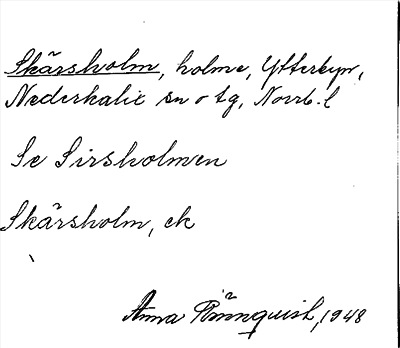 Skärsholm, holme, Ytterbyn,
Nederkalix sn o tg, Norrb. l
Se Sirsholmen
Skärsholm, ek
Anna Rönnquist, 1948